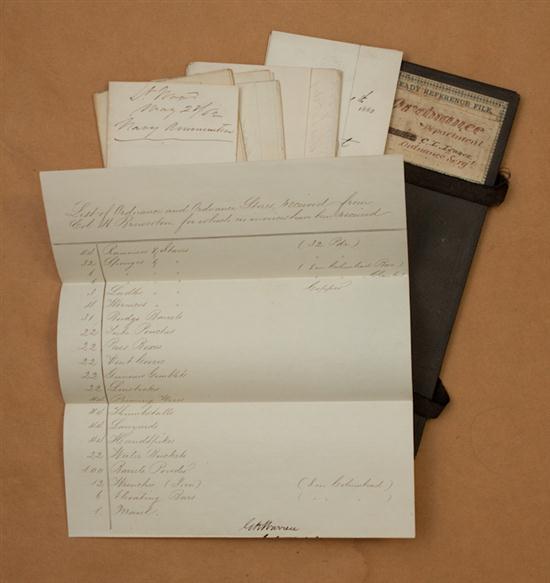 St Wood
May 28/62
Navy Ammunition
1862
READY REFERENCE FILE
Ordnance
Department
Ordnance Serg't
List of Ordnance and Ordnance Stores received from
Col H Brewerton for which no invoices have been received
44 Rammers & Staves (32 Pdr.)
32 Sponges & " "
6 " " (8 in Columbiad Bore)
6 " "
3 Ladles " " Copper
4 Worms " "
31 Budge Barrels
22 Tube Pouches
22 Pass Boxes
22 Vent Covers
22 Gunners Gimblets
22 Linstocks
44 Priming Wires
44 Thumbstalls
44 Lanyards
44 Handspikes
22 Water Buckets
100 Barrels Powder
12 Wrenches (Iron) (8 in Columbiad)
6 Elevating Bars ( " " " )
1 Maul